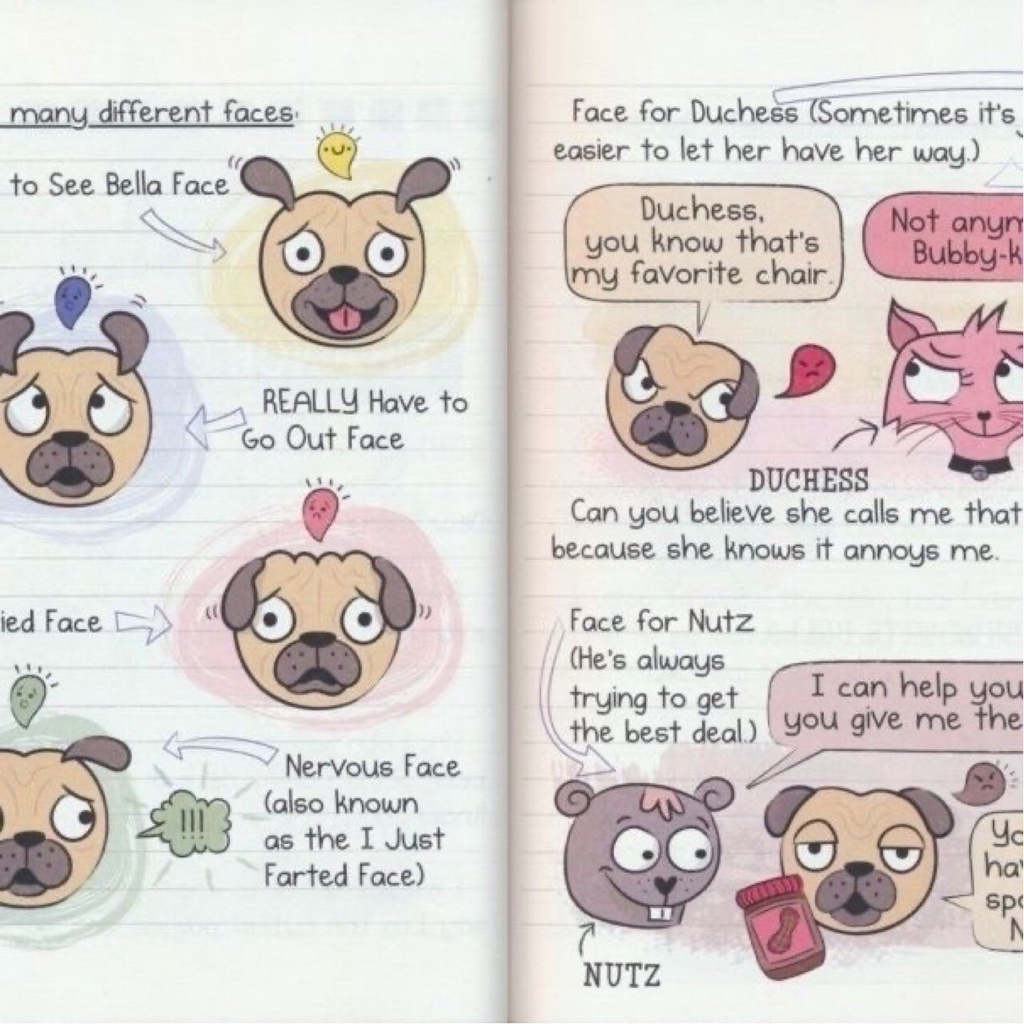 many different faces:
to See Bella Face
REALLY Have to
Go Out Face
ied Face
!!!
Nervous Face
(also known
as the I Just
Farted Face)
Face for Duchess (Sometimes it's
easier to let her have her way.)
Duchess,
you know that's
my favorite chair.
Not anym
Bubby-k
DUCHESS
Can you believe she calls me that
because she knows it annoys me.
Face for Nutz
(He's always
trying to get
the best deal.)
I can help you
you give me the
Yo
hav
spo
N
NUTZ